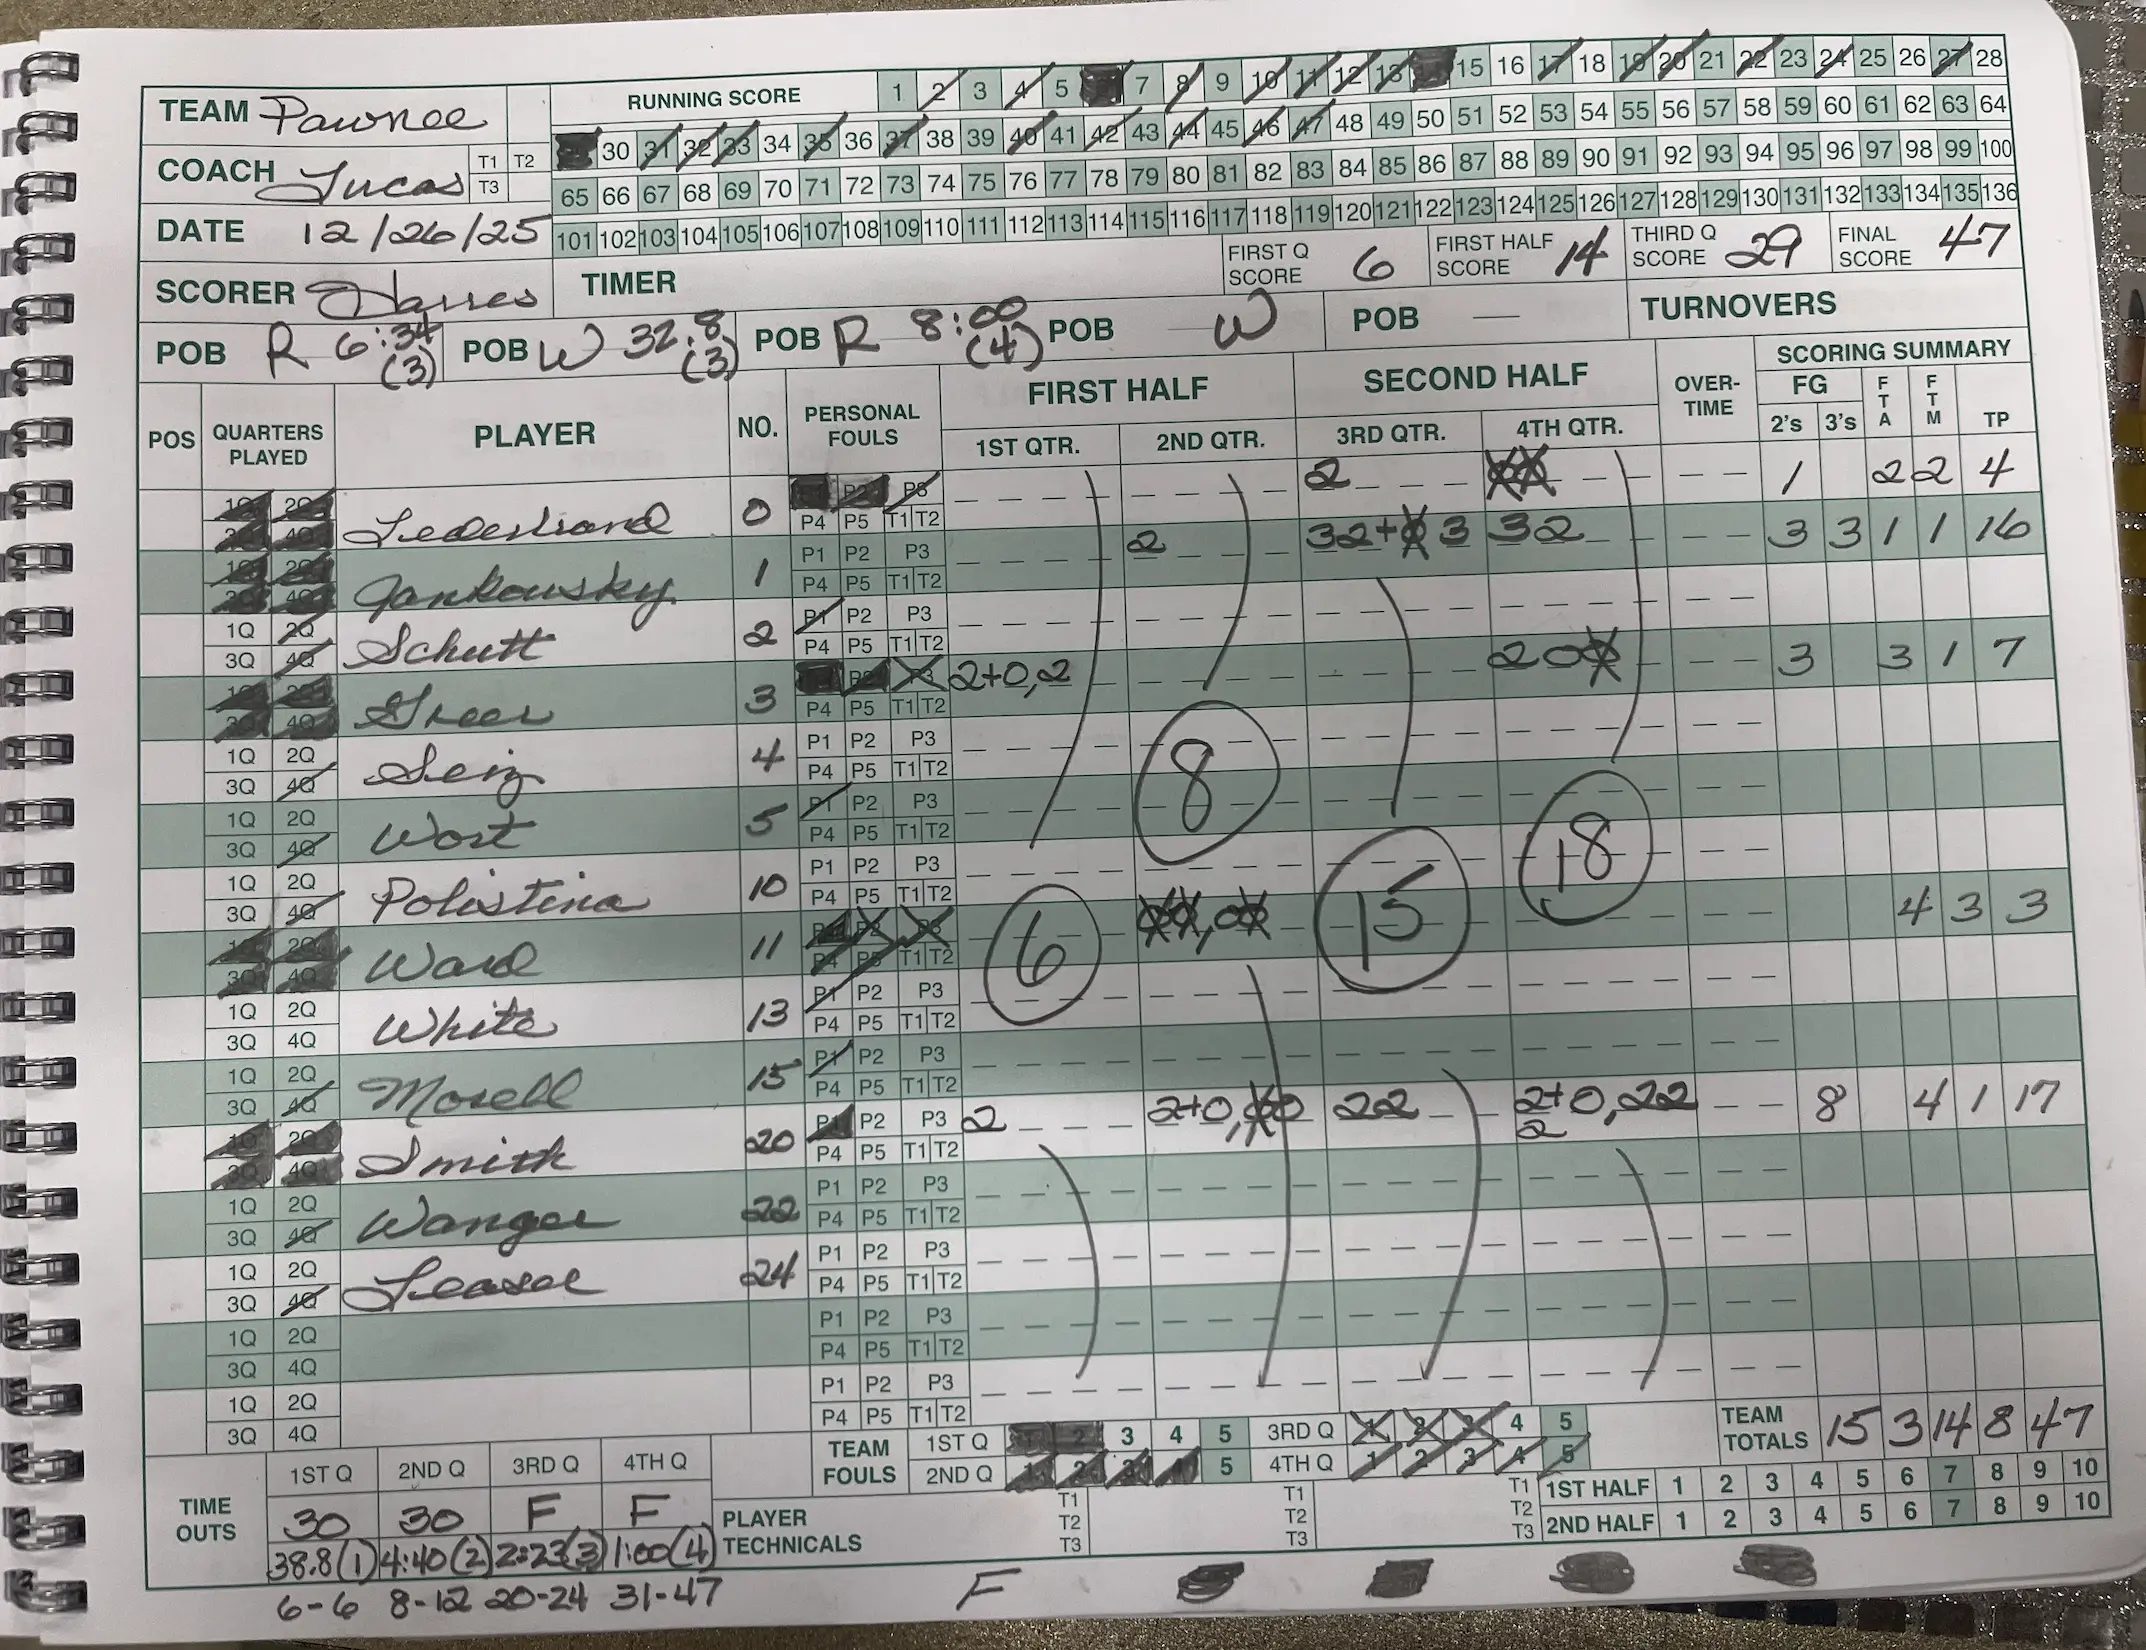 TEAM Pawnee
RUNNING SCORE 1 2 3 4 5 7 8 9 10 11 12 13 14 15 16 17 18 19 20 21 22 23 24 25 26 27 28
30 31 32 33 34 35 36 37 38 39 40 41 42 43 44 45 46 47 48 49 50 51 52 53 54 55 56 57 58 59 60 61 62 63 64
65 66 67 68 69 70 71 72 73 74 75 76 77 78 79 80 81 82 83 84 85 86 87 88 89 90 91 92 93 94 95 96 97 98 99 100
101 102 103 104 105 106 107 108 109 110 111 112 113 114 115 116 117 118 119 120 121 122 123 124 125 126 127 128 129 130 131 132 133 134 135 136
COACH Lucas T1 T2 T3
DATE 12/26/25
SCORER TIMER
FIRST Q SCORE 6 FIRST HALF SCORE 14 THIRD Q SCORE 29 FINAL SCORE 47
POB R 6:34 (3) POB W 32.8 (3) POB R 8:00 (4) POB W POB — TURNOVERS
POS QUARTERS PLAYED PLAYER NO. PERSONAL FOULS FIRST HALF SECOND HALF OVER-TIME SCORING SUMMARY
1ST QTR. 2ND QTR. 3RD QTR. 4TH QTR. FG 2's 3's FTA FTM TP
1Q 2Q 3Q 4Q 0 P1 P2 P3 P4 P5 T1 T2 2 1 2 2 4
1Q 2Q 3Q 4Q Jankowsky 1 P1 P2 P3 P4 P5 T1 T2 2 3 2 + 3 3 2 3 3 1 1 16
1Q 2Q 3Q 4Q Schutt 2 P1 P2 P3 P4 P5 T1 T2
1Q 2Q 3Q 4Q Greer 3 P2 P3 P4 P5 T1 T2 2+0,2 2 0 3 3 1 7
1Q 2Q 3Q 4Q Seiz 4 P1 P2 P3 P4 P5 T1 T2 8
1Q 2Q 3Q 4Q Wost 5 P1 P2 P3 P4 P5 T1 T2 18
1Q 2Q 3Q 4Q Polistina 10 P1 P2 P3 P4 P5 T1 T2
1Q 2Q 3Q 4Q Ward 11 P1 P2 P3 P4 P5 T1 T2 6 15 4 3 3
1Q 2Q 3Q 4Q White 13 P1 P2 P3 P4 P5 T1 T2
1Q 2Q 3Q 4Q Mosell 15 P1 P2 P3 P4 P5 T1 T2
1Q 2Q 3Q 4Q Smith 20 P1 P2 P3 P4 P5 T1 T2 2 2+0, 0 2 2 2+0,22 2 8 4 1 17
1Q 2Q 3Q 4Q Wanger 22 P1 P2 P3 P4 P5 T1 T2
1Q 2Q 3Q 4Q 24 P1 P2 P3 P4 P5 T1 T2
1Q 2Q 3Q 4Q P1 P2 P3 P4 P5 T1 T2
1Q 2Q 3Q 4Q P1 P2 P3 P4 P5 T1 T2
TEAM FOULS 1ST Q 1 2 3 4 5 3RD Q 1 2 3 4 5 TEAM TOTALS 15 3 14 8 47
2ND Q 1 2 3 4 5 4TH Q 1 2 3 4 5
TIME OUTS 1ST Q 2ND Q 3RD Q 4TH Q
30 30 F F
38.8(1) 4:40(2) 2:23(3) 1:00(4)
PLAYER TECHNICALS T1 T2 T3 T1 T2 T3 T1 T2 T3
1ST HALF 1 2 3 4 5 6 7 8 9 10
2ND HALF 1 2 3 4 5 6 7 8 9 10
6-6 8-12 20-24 31-47 F